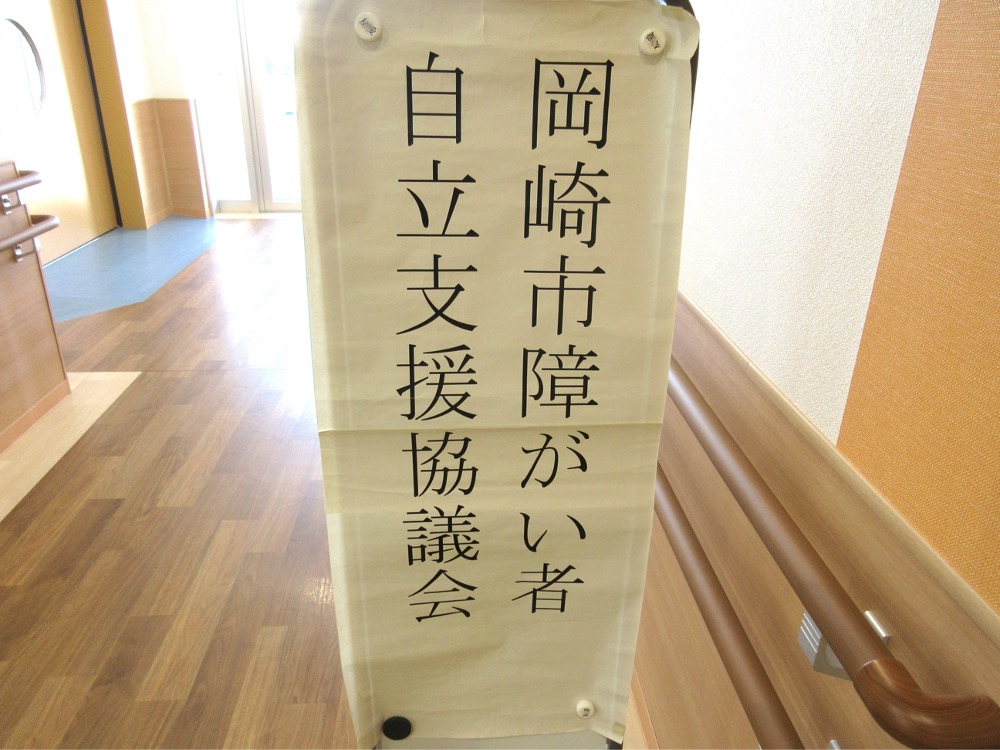 岡崎市障がい者
自立支援協議会